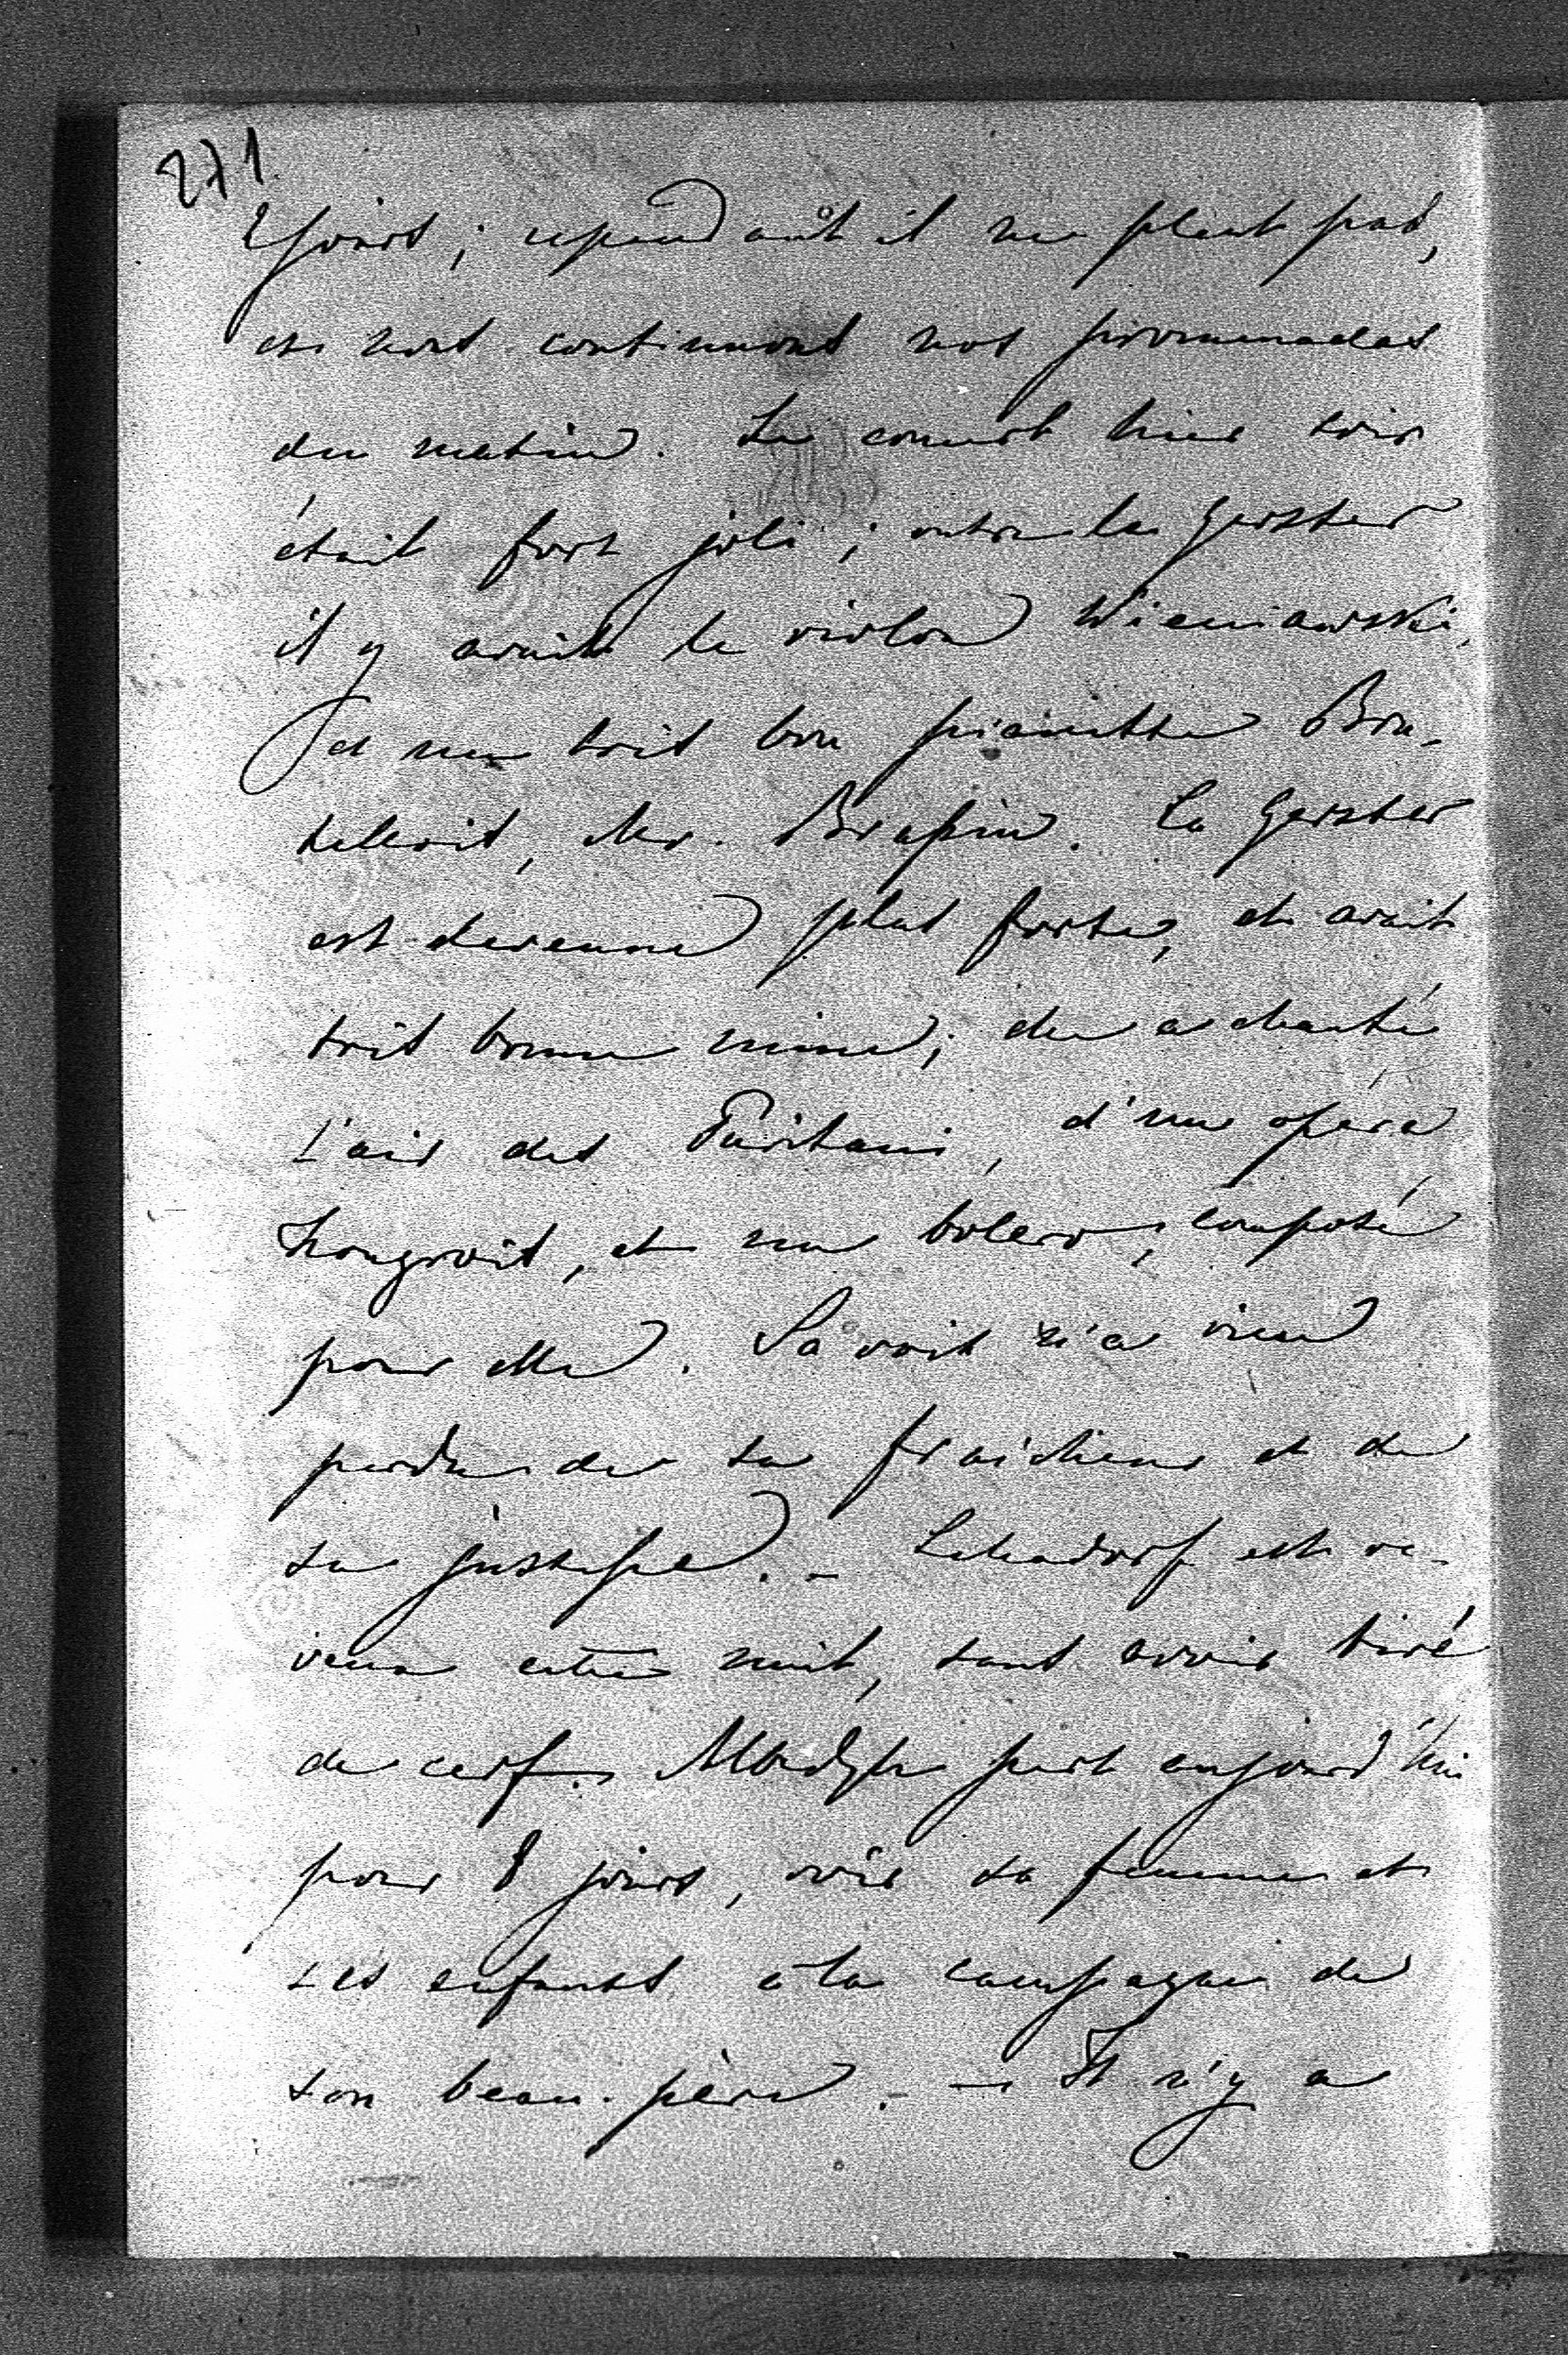 271.
2 jours; cependant il ne pleut pas,
et nous continuons nos promenades
du matin. Le concert hier soir
était fort joli; outre la Gerster
il y avait le violon Wieniawski,
et un très bon pianiste Bru-
xellois, Mr. Brassin. La Gerster
est devenue plus forte, et avait
très bonne mine; elle a chanté
l'air des Puritani, d'un opéra
hongrois, et un bolero, composé
pour elle. Sa voix n'a rien
perdu de sa fraicheur et de
sa justesse. – Lehndorf est re-
venu cette nuit, sans avoir tiré
de cerf. – Albedyll part aujourd'hui
pour 8 jours, voir sa femme et
ses enfants à la campagne de
son beau-père. – – Il n'y a